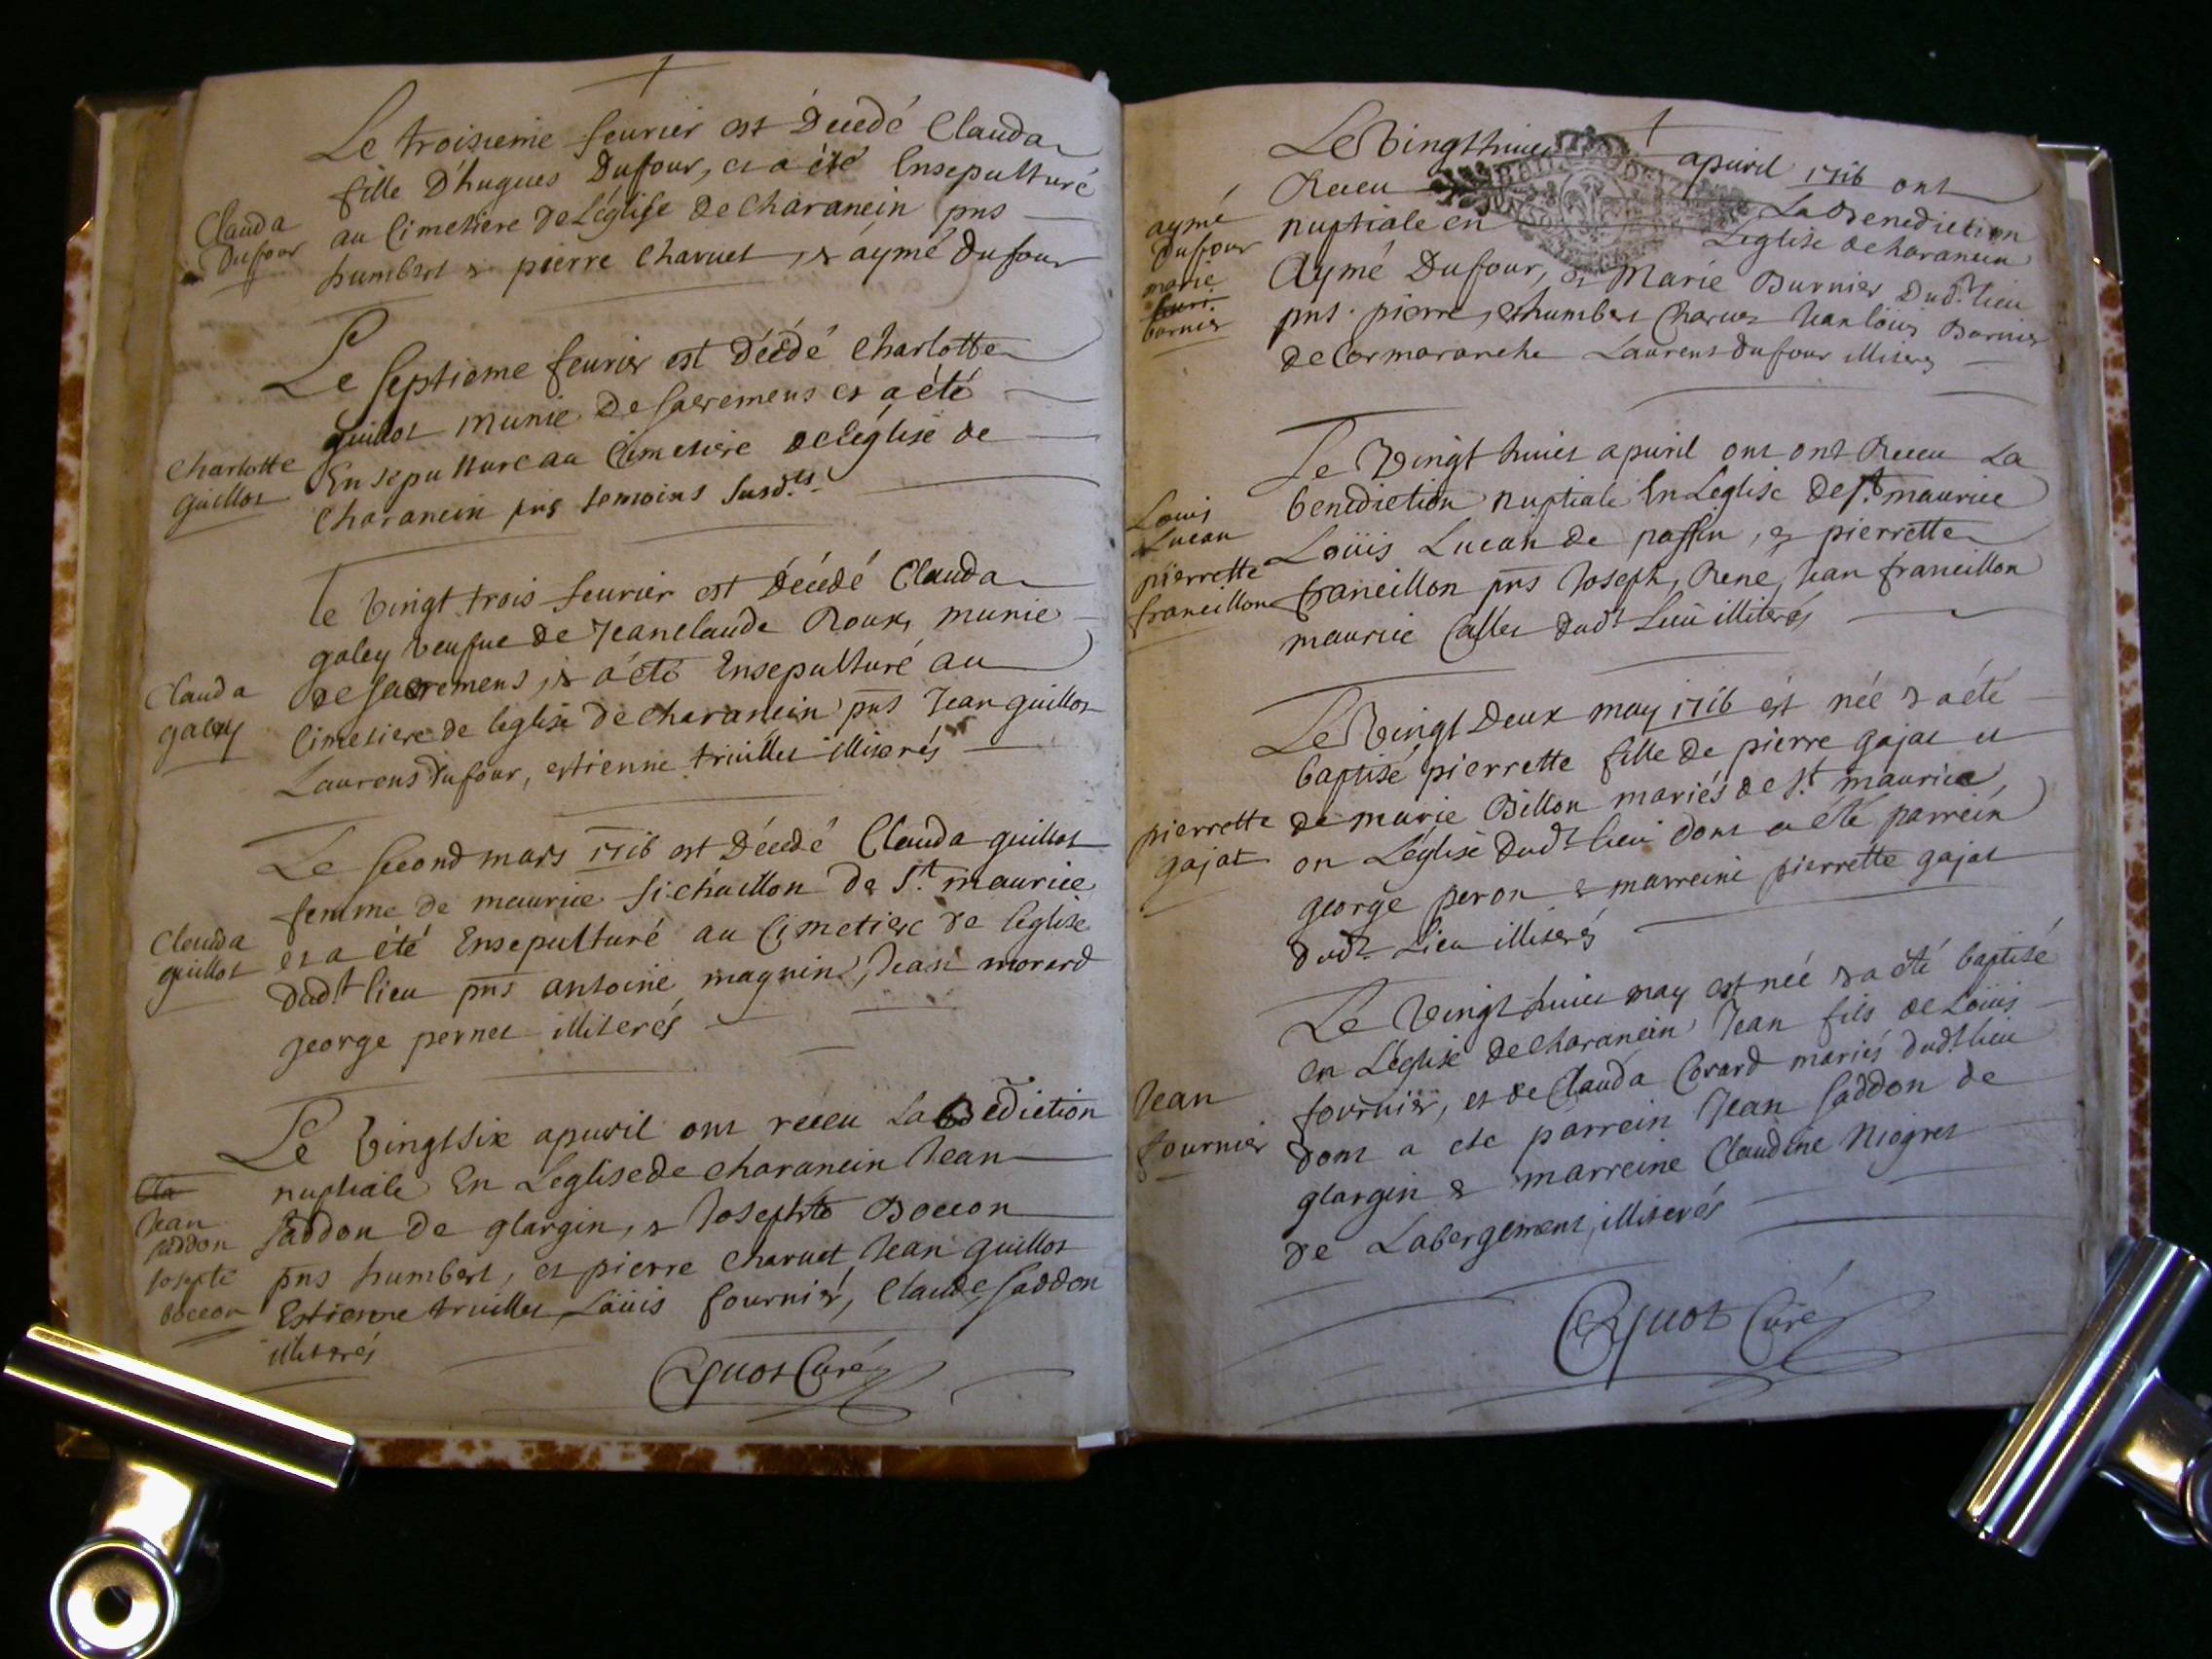 Le troisieme feurier est Décedé Clauda
fille D'hugues Dufour, et a été Ensepulturé
Clauda
Dufour
au Cimetiere De L'église de Charanein pns
humbert & pierre Charuet, & aymé Dufour
Le septieme feurier est Décédé Charlotte
guillot munie De sacremens et a été
Charlotte
guillot
Ensepulture au Cimetiere de l'église de
Charanein pns temoins susd.ts
le vingt trois feurier est Décédé Clauda
galey veufue de Jeanclaude Roux, munie
Clauda
galey
de sacremens, & a été Ensepulturé au
Cimetiere de leglise de Charanein pns Jean guillot
Laurens Dufour, estienne truillet illiterés
Le second mars 1716 est Décédé Clauda guillot
femme de maurice Sichaillon de S.t maurice
Clauda
guillot
et a été Ensepulturé au Cimetiere de leglise
dud.t lieu pns antoine magnin, Jean morard
george pernet illiterés
Le vingt six apuril ont receu La Bediction
Cla
nuptiale En Leglise de Charanein Jean
Jean
saddon
Saddon de glargin, & Josephte Boccon
Josepte
boccon
pns humbert, et pierre Charuet Jean guillot
Estienne truillet, Loüis fournier, Claude Saddon
illiterés
Cquot Curé
Le Vingt huict apuril 1716 ont
Receu La Benediction
aymé
Dufour
marie
buri
burnier
nuptiale en Léglise de charanein
Aymé Dufour, et Marie Burnier Dud.t lieu
pns. pierre, & humbert Charuet Jean loüis Burnier
de Cormaranche Laurent Dufour illiterés
Le Vingt huict apuril ont ont Receu La
benediction nuptiale En Leglise de S.t maurice
Louis
Lucan
pierrette
francillon
Loüis Lucan de passin, & pierrette
francillon pns Joseph, Rene, Jean francillon
maurice Callet dud.t Lieu illiterés
Le Vingt Deux may 1716 est née & a été
baptisé pierrette fille de pierre gajat et
pierrette
gajat
de marie Billon mariés de S.t maurice,
en L'église Dud.t lieu dont a été parrein
george peron & marreine pierrette gajat
dud.t Lieu illiterés
Le Vingt huict may est née & a été baptisé
en L'église de Charanein Jean fils de Loüis
Jean
fournier
fournier, et de Clauda Corard mariés dud.t lieu
dont a ete parrein Jean Saddon de
glargin & marreine Claudine Niogret
de Labergement, illiterés
Cquot Curé